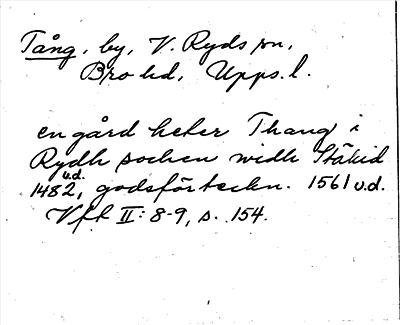 Tång, by, V. Ryds sn,
Bro hd, Upps. l.
en gård heter Thang i
Rydh sochen widh Stäkid
u.d.
1482, godsförteckn. 1561 u.d.
Vfr II: 8-9, s. 154.